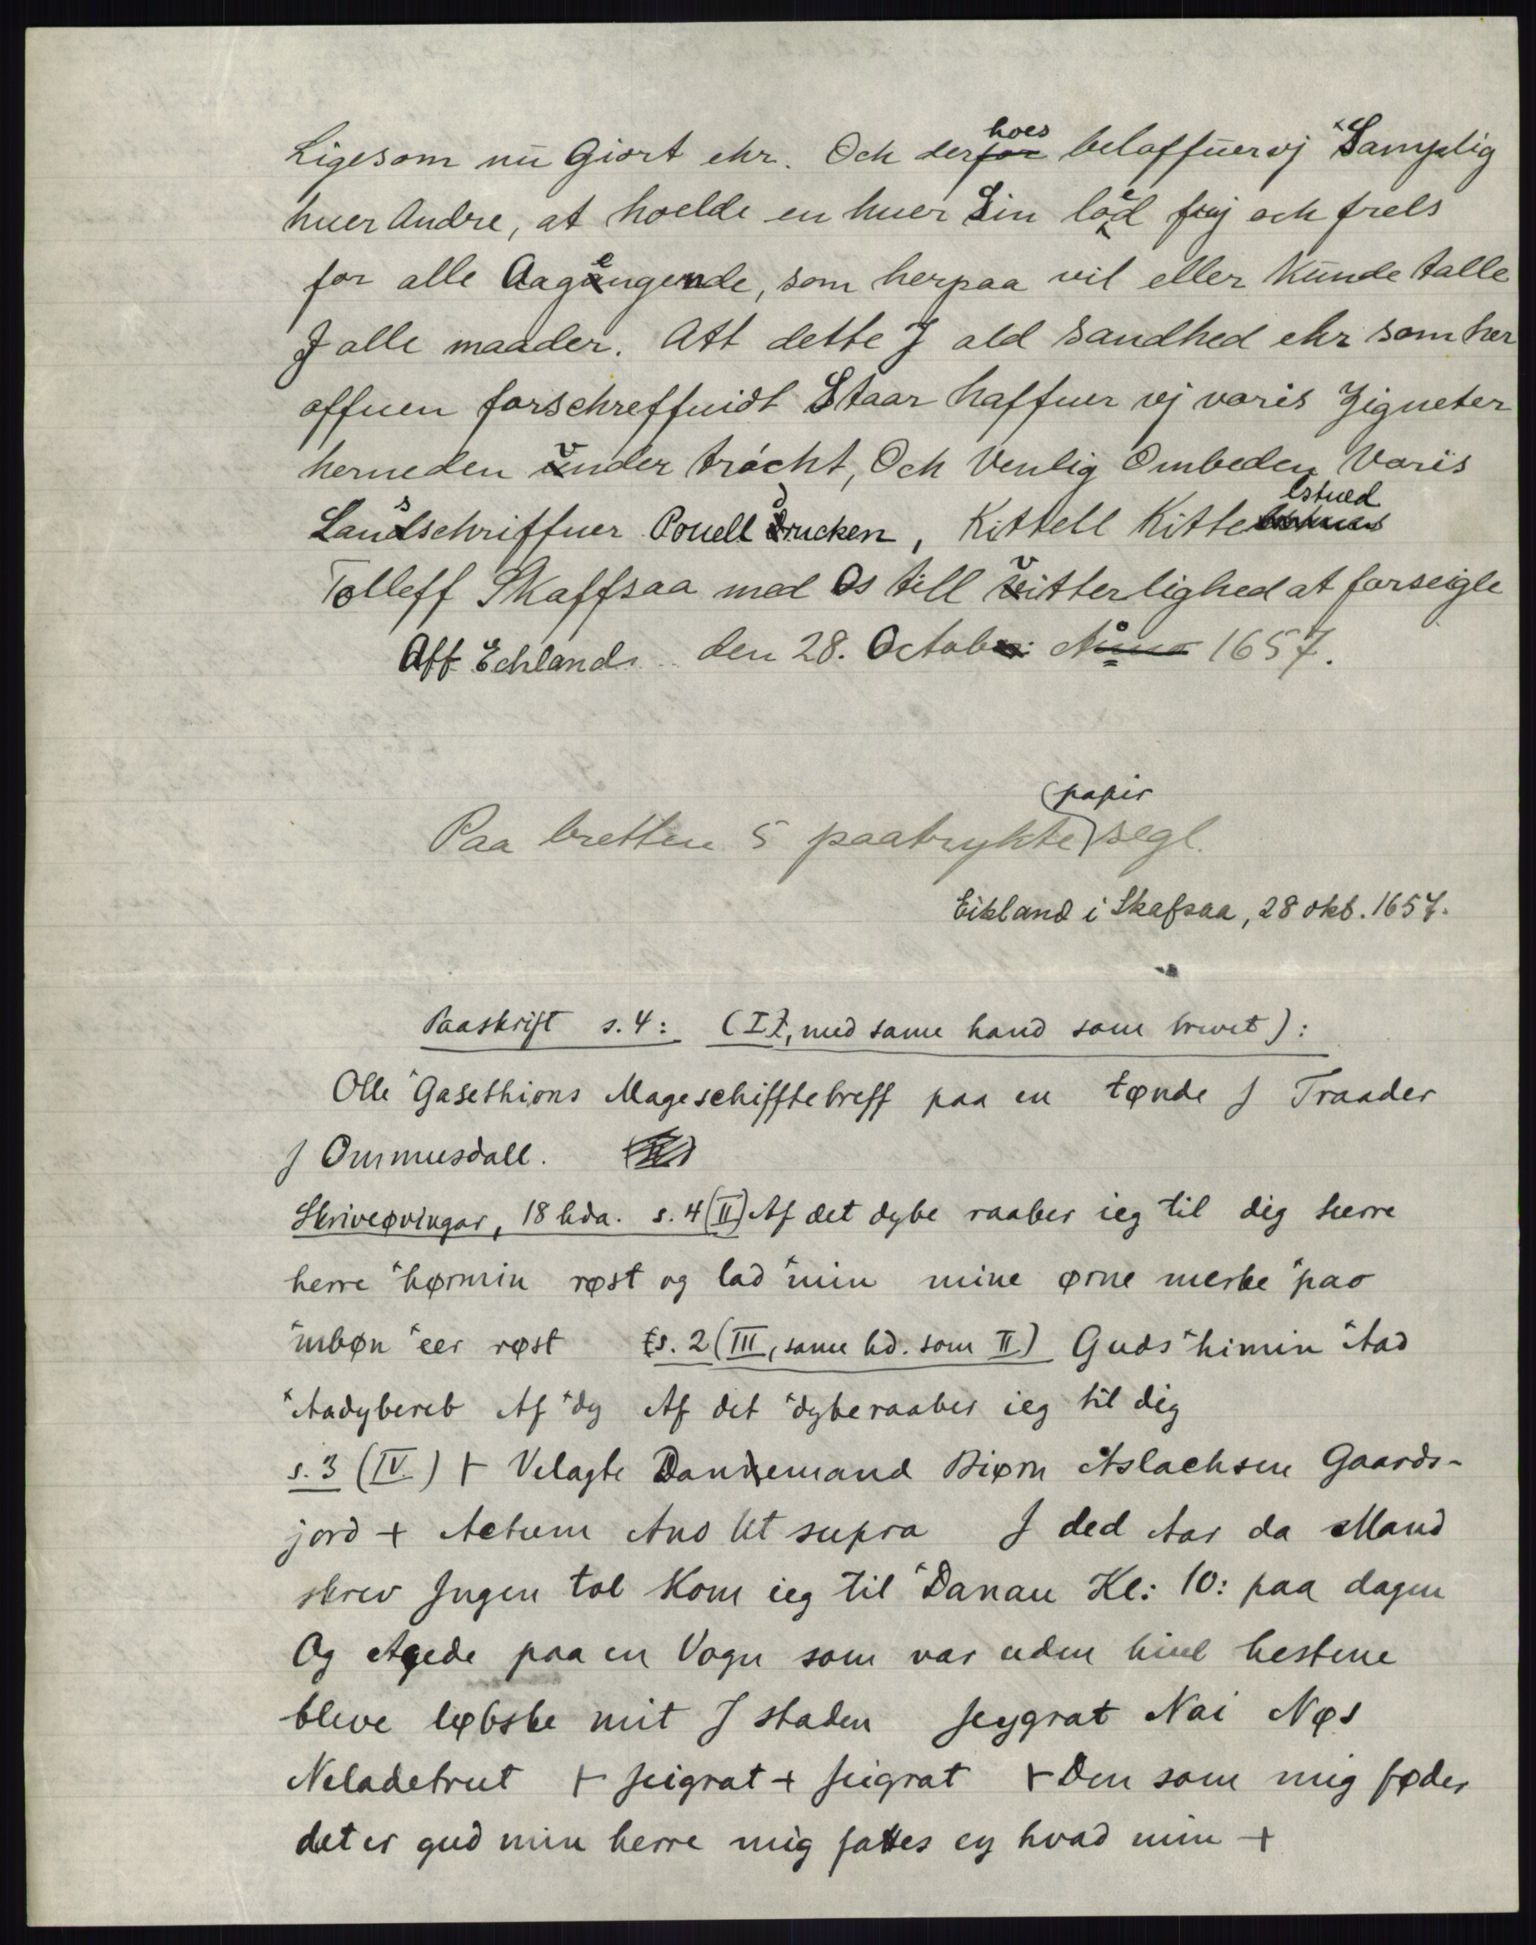 Ligesom nū Giort ehr. Och derhoes beloffuer vj *Samptlig
huer Andre, at hoelde en huer Sin loed frij och frels
for alle Aagengende, som herpaa vil eller Kūnde talle
J alle maader. Att dette J ald Sandhed ehr som her
offuen forschreffuidt Staar haffuer vj voris Zigneter
herneden vnder tròcht, Och Venlig Ombeden Voris
Landschriffuer Pouell Drucken, Kittell Kittelstued
Tolleff Skaffsaa med Os till vitterlighed at forseigle
Aff Echland. den 28. Octob: Ao 1657.
Paa bretten 5 paatrykte papir segl.
Eikland i Skafsaa, 28 okt. 1657.
Paaskrift s. 4: (I, med same hand som brevet):
Olle *Gasethions Mageschifftebreff paa en tønde J Traader
J Ommusdall.
Skriveøvingar, 18 hda. s. 4 (II) Af det dybe raaber ieg til dig herre
herre *hørmin røst og lad *min mine ørne merke *pao
*mbøn *eer røst s. 2 (III, same hd. som II) Guds *himin *Aad
*Aadybereb Af *dy Af det *dyberaaber ieg til dig
s. 3 (IV.) + Velagte Dannemand Biørn Aslachsen Gaards-
jord + Actum Ano Ut supra J ded Aar da Mand
skrev Jngen tal Kom ieg til *Danau Kl: 10: paa dagen
Og Agede paa en Vogn som var uden hiul hestene
bleve løbske mit J staden feygrat Nai Nøs
Neladetrut + feigrat + feigrat + Den som mig føder
det er gud min herre mig fattes ey hvad min +